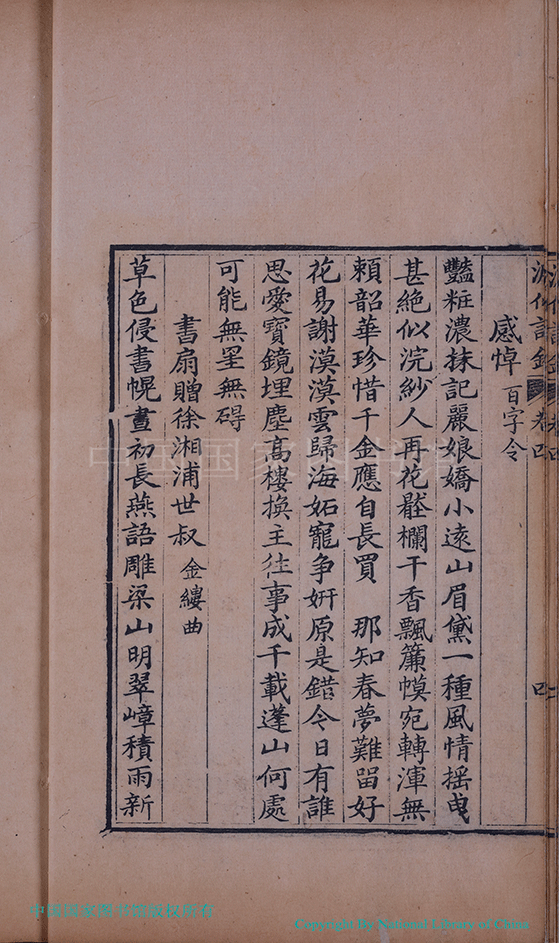 卷四
四
感悼 百字令
豔粧濃抹記麗娘嬌小遠山眉黛一種風情搖曳
甚絕似浣紗人再花壓欄干香飄簾幙宛轉渾無
賴韶華珍惜千金應自長買 那知春夢難畱好
花易謝漠漠雲歸海妬寵爭妍原是錯今日有誰
思愛寶鏡埋塵高樓換主往事成千載蓬山何處
可能無罣無碍
書扇贈徐湘浦世叔 金縷曲
草色侵書幌晝初長燕語雕梁山明翠嶂積雨新
中国国家图书馆
中国国家图书馆版权所有
Copyright By National Library of China